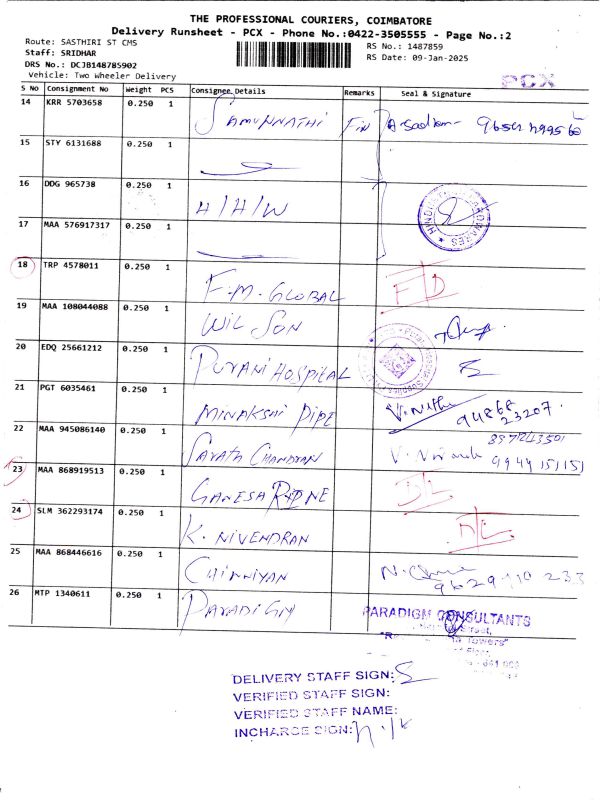 THE PROFESSIONAL COURIERS, COIMBATORE
Delivery Runsheet - PCX - Phone No.:0422-3505555 - Page No.:2
Route: SASTHIRI ST CMS
RS No.: 1487859
Staff: SRIDHAR
RS Date: 09-Jan-2025
DRS No.: DCJB148785902
Vehicle: Two Wheeler Delivery
PCX
S No Consignment No Weight PCS Consignee Details Remarks Seal & Signature
14 KRR 5703658 0.250 1 SAMUNNATHI FIN
15 STY 6131688 0.250 1
16 DDG 965738 0.250 1 H/H/W
17 MAA 576917317 0.250 1
18 TRP 4578011 0.250 1 F.M. GLOBAL
19 MAA 108044088 0.250 1 WILSON
20 EDQ 25661212 0.250 1 PURANI HOSPITAL
21 PGT 6035461 0.250 1 MINAKSHI PIPE 94868 23207
22 MAA 945086140 0.250 1 CHANDRAN 9944151151
23 MAA 868919513 0.250 1 GANESA
24 SLM 362293174 0.250 1 K. NIVENDRAN
25 MAA 868446616 0.250 1 CHINNIYAN
26 MTP 1340611 0.250 1 PARADIGM PARADIGM CONSULTANTS
Towers"
DELIVERY STAFF SIGN:
VERIFIED STAFF SIGN:
VERIFIED STAFF NAME:
INCHARGE SIGN: